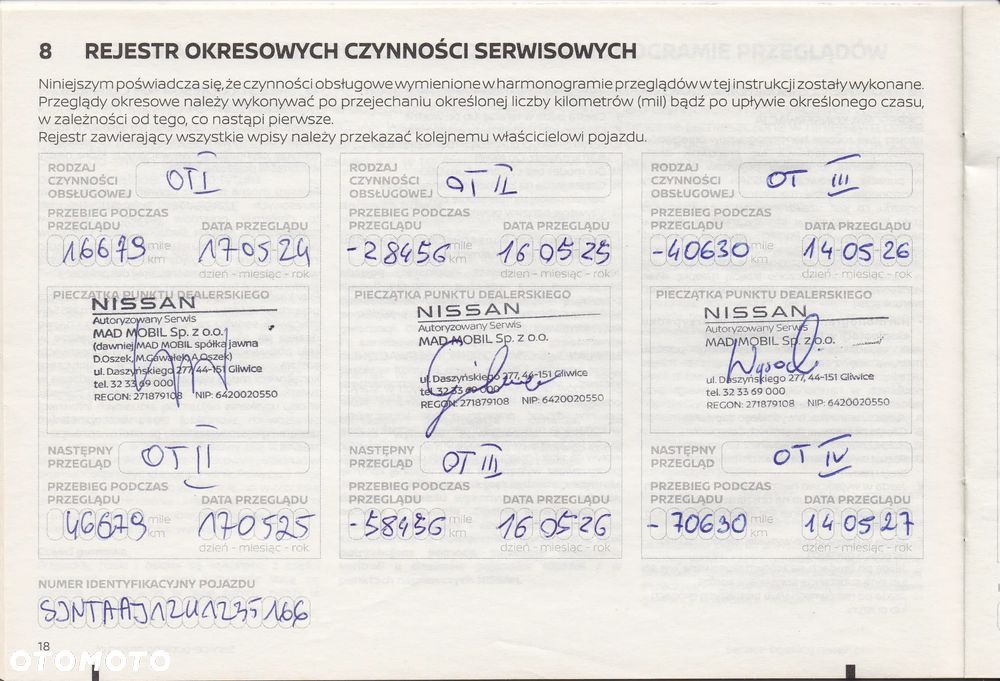 8 REJESTR OKRESOWYCH CZYNNOŚCI SERWISOWYCH
Niniejszym poświadcza się, że czynności obsługowe wymienione w harmonogramie przeglądów w tej instrukcji zostały wykonane.
Przeglądy okresowe należy wykonywać po przejechaniu określonej liczby kilometrów (mil) bądź po upływie określonego czasu,
w zależności od tego, co nastąpi pierwsze.
Rejestr zawierający wszystkie wpisy należy przekazać kolejnemu właścicielowi pojazdu.
RODZAJ
CZYNNOŚCI
OBSŁUGOWEJ
OT I
PRZEBIEG PODCZAS
PRZEGLĄDU
DATA PRZEGLĄDU
16679 mile
km
170524
dzień - miesiąc - rok
PIECZĄTKA PUNKTU DEALERSKIEGO
NISSAN
Autoryzowany Serwis
MAD MOBIL Sp. z o.o.
(dawniej MAD MOBIL spółka jawna
D.Oszek, M.Gawałek, A.Oszek)
ul. Daszyńskiego 277, 44-151 Gliwice
tel. 32 33 69 000
REGON: 271879108 NIP: 6420020550
NASTĘPNY
PRZEGLĄD
OT II
PRZEBIEG PODCZAS
PRZEGLĄDU
DATA PRZEGLĄDU
46679 mile
km
170525
dzień - miesiąc - rok
RODZAJ
CZYNNOŚCI
OBSŁUGOWEJ
OT II
PRZEBIEG PODCZAS
PRZEGLĄDU
DATA PRZEGLĄDU
-28456 mile
km
16 05 25
dzień - miesiąc - rok
PIECZĄTKA PUNKTU DEALERSKIEGO
NISSAN
Autoryzowany Serwis
MAD MOBIL Sp. z o.o.
ul. Daszyńskiego 277, 44-151 Gliwice
tel. 32 33 69 000
REGON: 271879108 NIP: 6420020550
NASTĘPNY
PRZEGLĄD
OT III
PRZEBIEG PODCZAS
PRZEGLĄDU
DATA PRZEGLĄDU
-58456 mile
km
16 05 26
dzień - miesiąc - rok
RODZAJ
CZYNNOŚCI
OBSŁUGOWEJ
OT III
PRZEBIEG PODCZAS
PRZEGLĄDU
DATA PRZEGLĄDU
-40630 mile
km
14 05 26
dzień - miesiąc - rok
PIECZĄTKA PUNKTU DEALERSKIEGO
NISSAN
Autoryzowany Serwis
MAD MOBIL Sp. z o.o.
ul. Daszyńskiego 277, 44-151 Gliwice
tel. 32 33 69 000
REGON: 271879108 NIP: 6420020550
NASTĘPNY
PRZEGLĄD
OT IV
PRZEBIEG PODCZAS
PRZEGLĄDU
DATA PRZEGLĄDU
- 70630 mile
km
14 05 27
dzień - miesiąc - rok
NUMER IDENTYFIKACYJNY POJAZDU
SJNTAAJ12U1235166
18
OTOMOTO